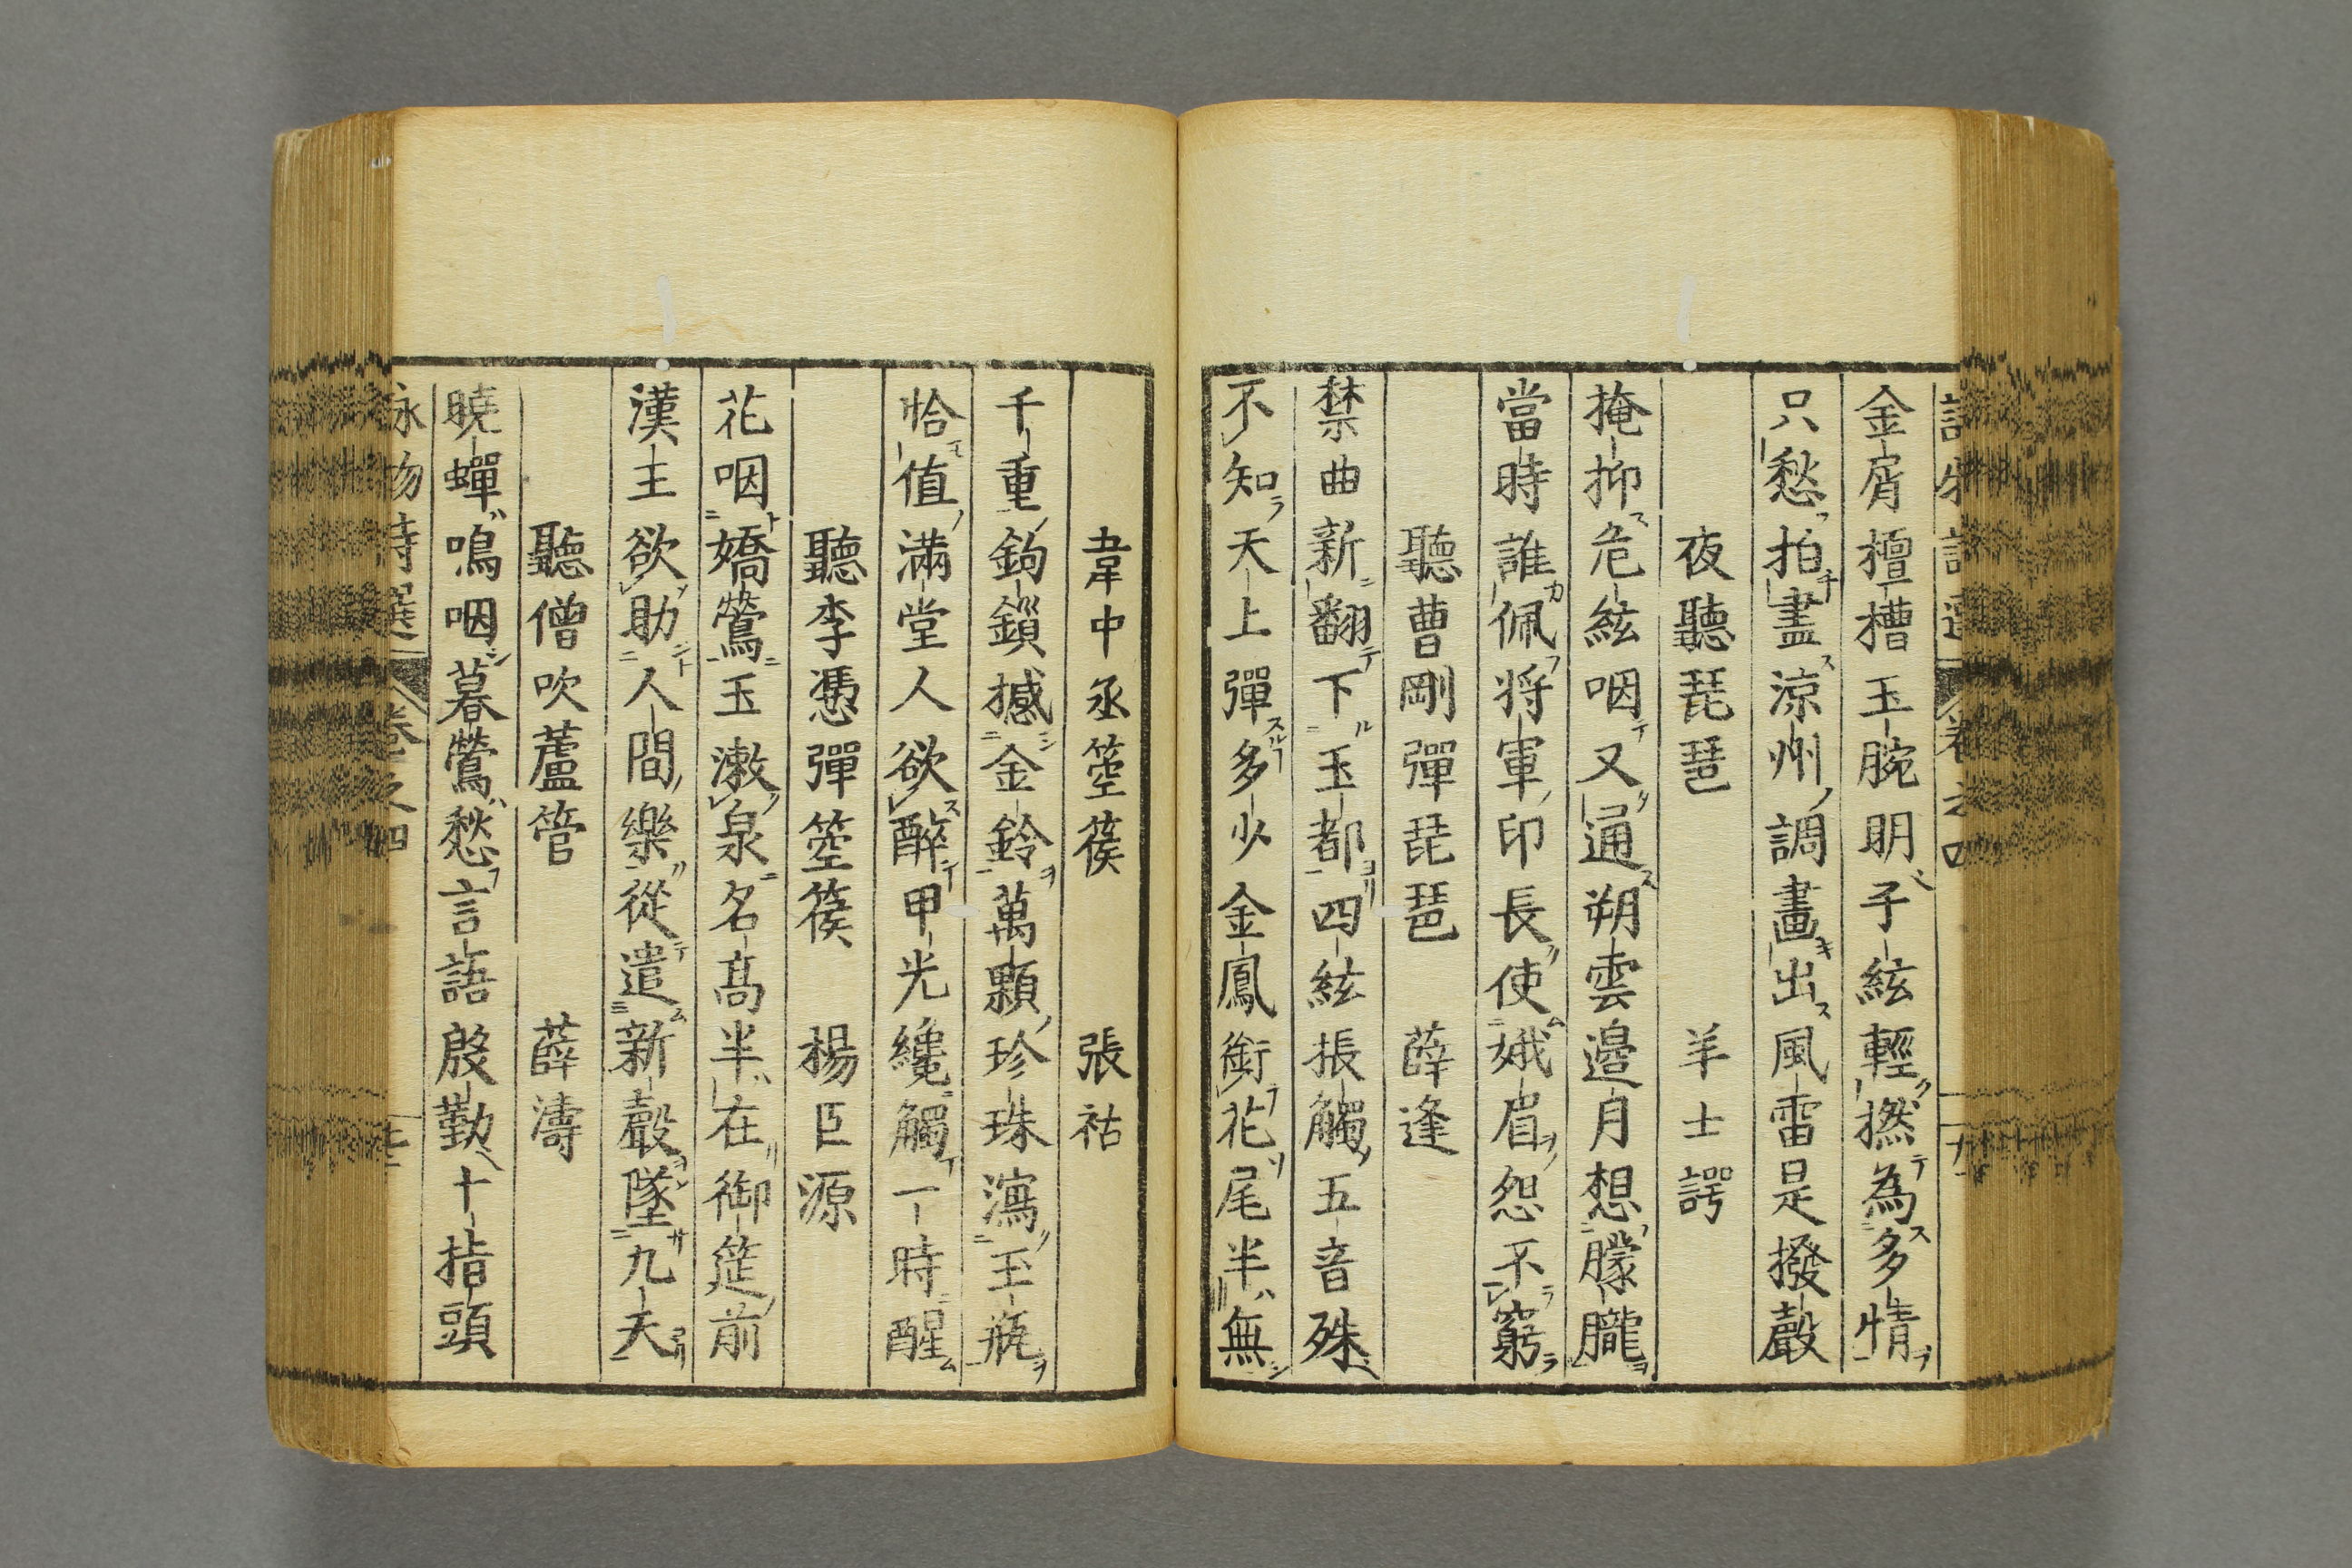 金屑檀槽玉腕明子絃輕撚為多情
只愁拍盡涼州調畫出風雷是撥聲
夜聽琵琶 羊士諤
掩抑危絃咽又通朔雲邉月想朦朧
當時誰佩将軍印長使娥眉怨不窮
聽曹剛彈琵琶 薛逢
禁曲新翻下玉都四絃振觸五音殊
不知天上彈多少金鳳銜花尾半無
韋中丞箜篌 張祜
千重鉤鎖撼金鈴萬顆珍珠瀉玉瓶
恰值滿堂人欲醉甲光纔觸一時醒
聽李憑彈箜篌 楊巨源
花咽嬌鶯玉漱泉名髙半在御筵前
漢王欲助人間樂從遣新聲墜九天
聽僧吹蘆管 薛濤
曉蟬鳴咽暮鶯愁言語殷勤十指頭
詠物詩選 卷之四